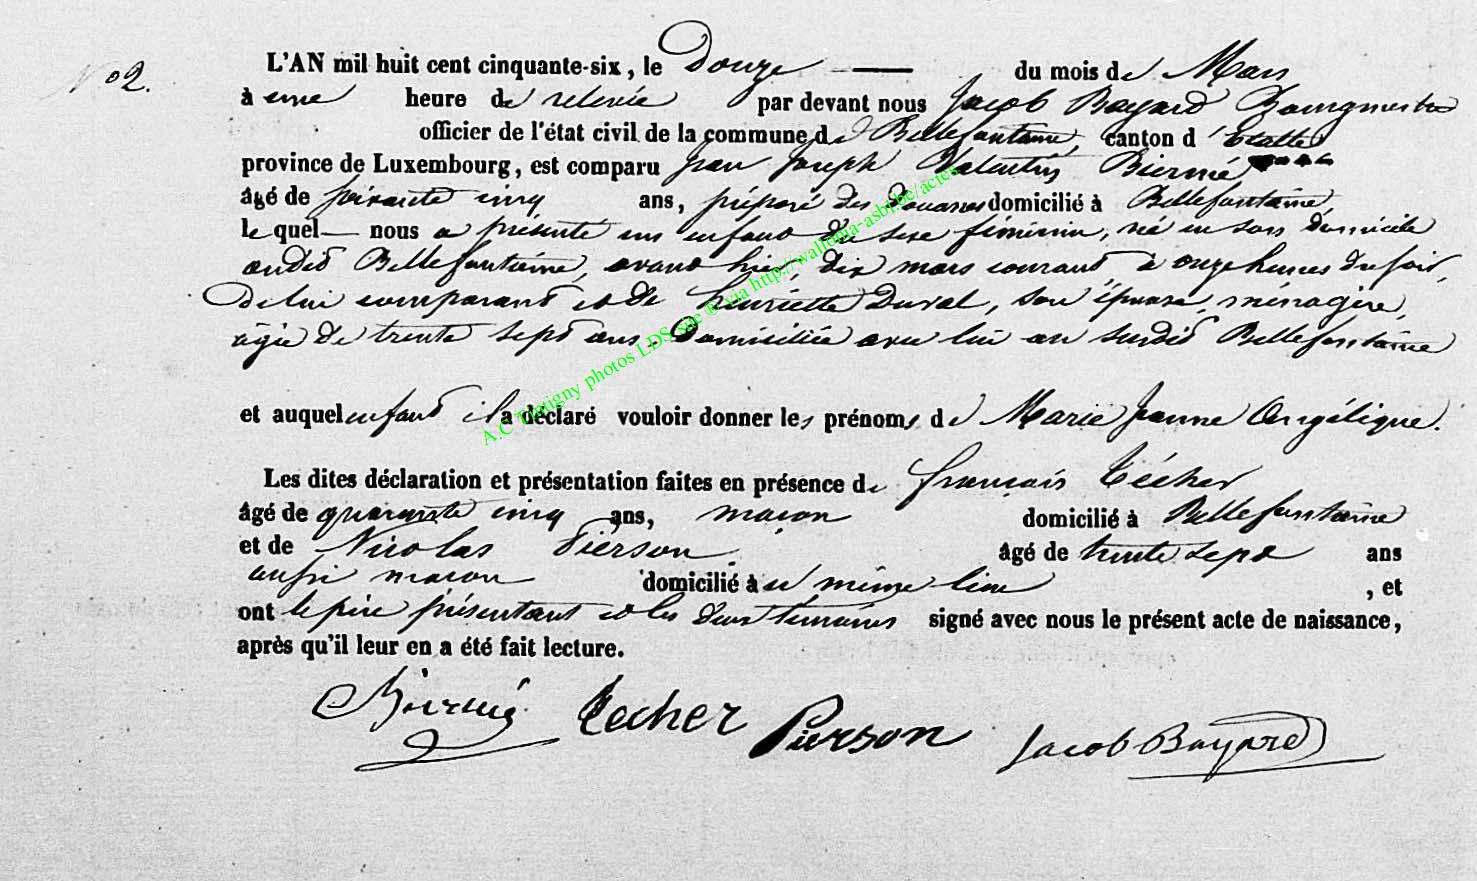 N° 2.
L'AN mil huit cent cinquante-six, le Douze du mois de Mars
à une heure de relevée par devant nous Jacob Bayard Bourgmestre
officier de l'état civil de la commune de Bellefontaine, canton d'Etalle
province de Luxembourg, est comparu Jean Joseph Valentin Biermé
âgé de soixante cinq ans, préposé des douanes domicilié à Bellefontaine
le quel nous a présenté un enfant du sexe féminin, né en son domicile
audit Bellefontaine, avant hier, dix mars courant, à onze heures du soir,
de lui comparant et de Henriette Duval, son épouse, ménagère,
âgée de trente sept ans. Domiciliée avec lui au susdit Bellefontaine
et auquel enfant il a déclaré vouloir donner les prénoms de Marie Jeanne Angélique.
Les dites déclaration et présentation faites en présence de François Técher
âgé de quarante cinq ans, maçon domicilié à Bellefontaine
et de Nicolas Pierson âgé de trente sept ans
aussi maçon domicilié à u même lieu, et
ont le père présentant et les deux témoins signé avec nous le présent acte de naissance,
après qu'il leur en a été fait lecture.
Biermé Techer Pierson Jacob Bayard
A.C Tintigny photos LDS site ® via http://wallonia-asbl.be/actes